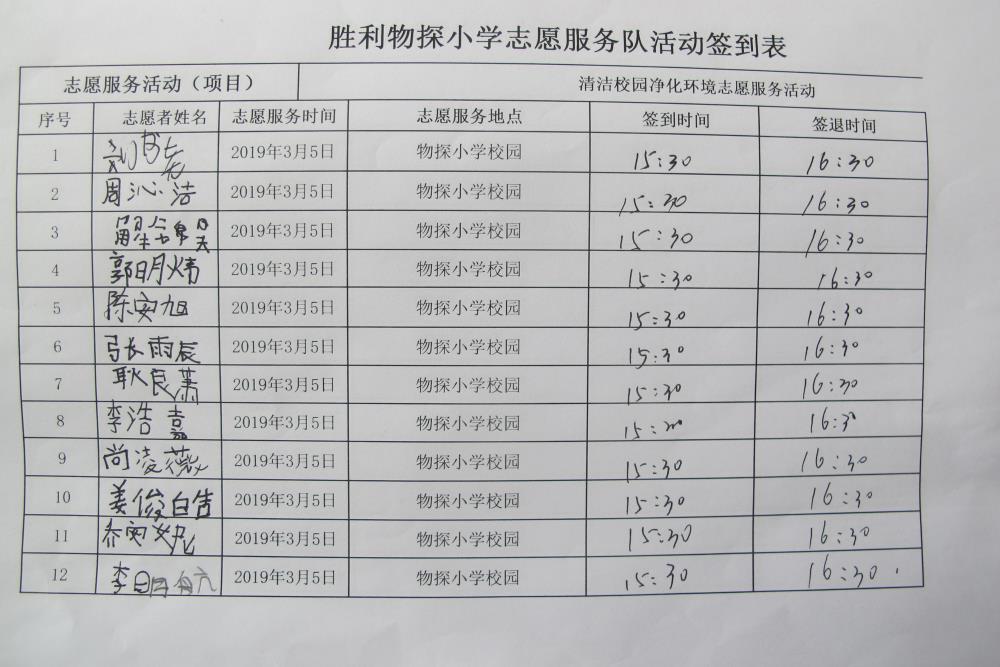 胜利物探小学志愿服务队活动签到表
志愿服务活动（项目） 清洁校园净化环境志愿服务活动
序号 志愿者姓名 志愿服务时间 志愿服务地点 签到时间 签退时间
1 2019年3月5日 物探小学校园 15:30 16:30
2 周沁洁 2019年3月5日 物探小学校园 15:30 16:30
3 2019年3月5日 物探小学校园 15:30 16:30
4 郭明炜 2019年3月5日 物探小学校园 15:30 16:30
5 陈奕旭 2019年3月5日 物探小学校园 15:30 16:30
6 张雨辰 2019年3月5日 物探小学校园 15:30 16:30
7 耿良萧 2019年3月5日 物探小学校园 15:30 16:30
8 李浩嘉 2019年3月5日 物探小学校园 15:30 16:30
9 尚凌薇 2019年3月5日 物探小学校园 15:30 16:30
10 姜俊皓 2019年3月5日 物探小学校园 15:30 16:30
11 2019年3月5日 物探小学校园 15:30 16:30
12 李明航 2019年3月5日 物探小学校园 15:30 16:30